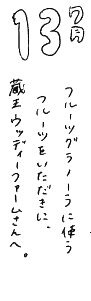 13カ月
フルーツグラノーラに使う
フルーツをいただきに、
蔵王ウッディーファームさんへ。